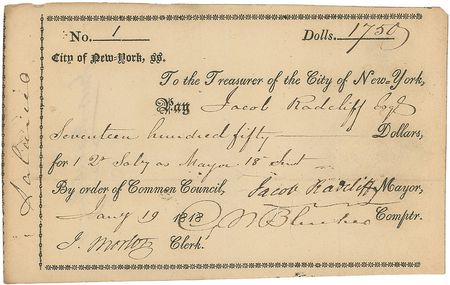 No. 1 Dolls. 1750
City of New-York, ss.
To the Treasurer of the City of New-York,
Pay Jacob Radcliff Esqr
Seventeen hundred fifty Dollars,
for 1 Qr Saly as Mayor 18 Inst
By order of Common Council, Jacob Radcliff Mayor,
Jany 19 1818 Comptr.
J. Morton Clerk.
Salaries